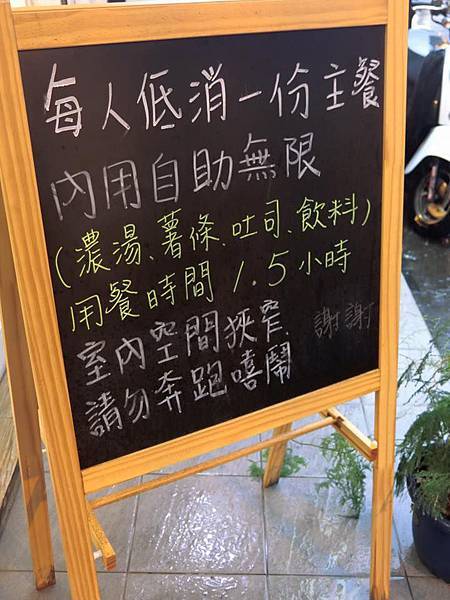 每人低消一份主餐
內用自助無限
(濃湯、薯條、吐司、飲料)
用餐時間 1.5小時
室內空間狹窄
請勿奔跑嘻鬧 謝謝